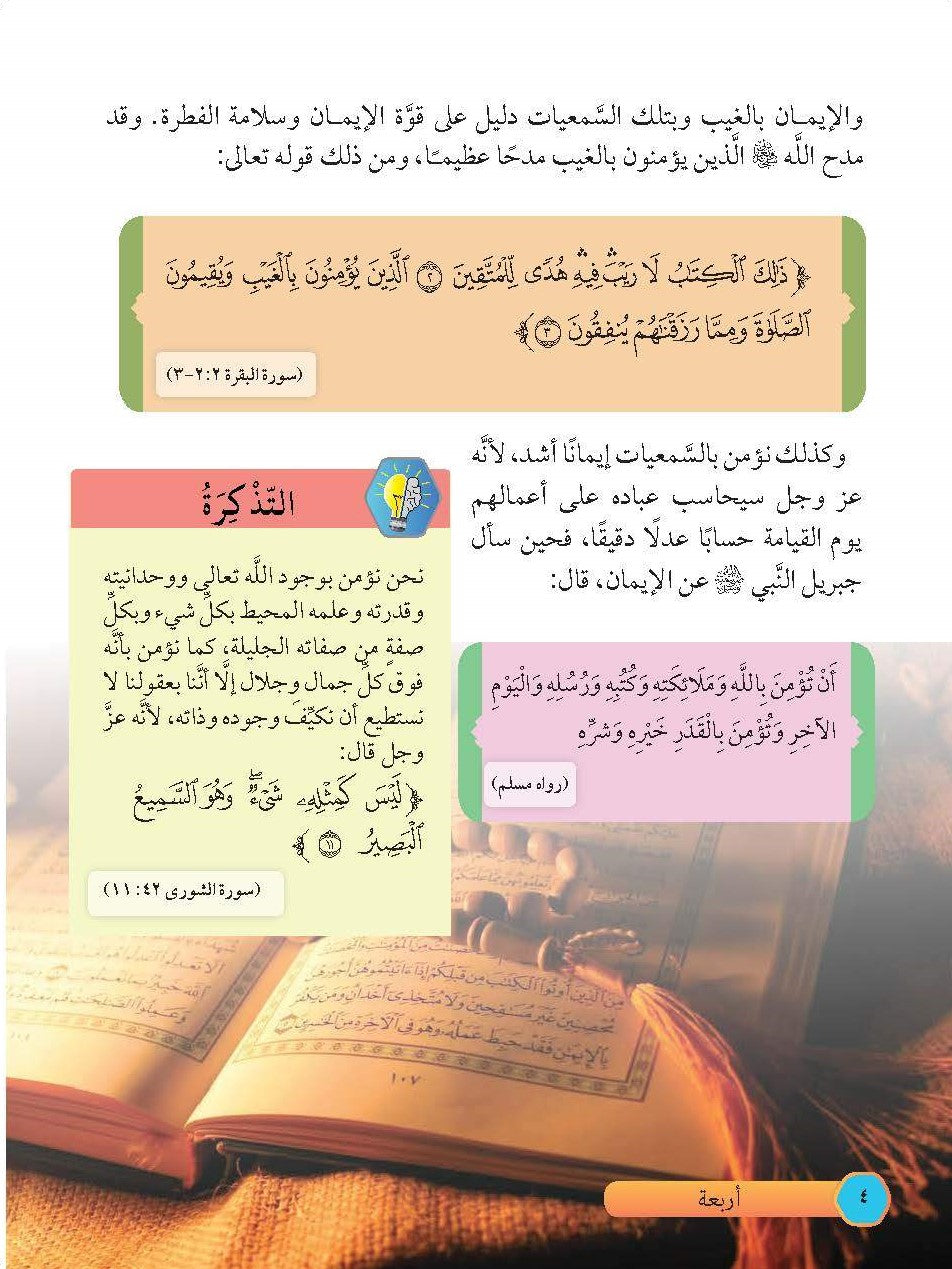 والإيمـان بالغيب وبتلك السَّمعيات دليل على قوَّة الإيمـان وسلامة الفطرة. وقد
مدح اللَّه ﷻ الَّذين يؤمنون بالغيب مدحًا عظيمـًا، ومن ذلك قوله تعالى:
﴿ ذَٰلِكَ ٱلْكِتَـٰبُ لَا رَيْبَ ۛ فِيهِ ۛ هُدًى لِّلْمُتَّقِينَ ٢ ٱلَّذِينَ يُؤْمِنُونَ بِٱلْغَيْبِ وَيُقِيمُونَ
ٱلصَّلَوٰةَ وَمِمَّا رَزَقْنَـٰهُمْ يُنفِقُونَ ٣ ﴾
(سورة البقرة ٢:٢-٣)
وكذلك نؤمن بالسَّمعيات إيمانًا أشد، لأنَّه
عز وجل سيحاسب عباده على أعمالهم
يوم القيامة حسابًا عدلًا دقيقًا، فحين سأل
جبريل النَّبي ﷺ عن الإيمان، قال:
أَنْ تُؤْمِنَ بِاللَّهِ وَمَلَائِكَتِهِ وَكُتُبِهِ وَرُسُلِهِ وَالْيَوْمِ
الآخِرِ وَتُؤْمِنَ بِالْقَدَرِ خَيْرِهِ وَشَرِّهِ
(رواه مسلم)
التّذْكِرَةُ
نحن نؤمن بوجود اللَّه تعالى ووحدانيته
وقدرته وعلمه المحيط بكلِّ شيء وبكلِّ
صفةٍ من صفاته الجليلة، كما نؤمن بأنَّه
فوق كلِّ جمال وجلال إلَّا أنَّنا بعقولنا لا
نستطيع أن نكيِّفَ وجوده وذاته، لأنَّه عزَّ
وجل قال:
﴿ لَيْسَ كَمِثْلِهِۦ شَىْءٌ ۖ وَهُوَ ٱلسَّمِيعُ
ٱلْبَصِيرُ ١١ ﴾
(سورة الشورى ٤٢: ١١)
مِنَ ٱلَّذِينَ أُوتُوا۟ ٱلْكِتَـٰبَ مِن قَبْلِكُمْ إِذَآ ءَاتَيْتُمُوهُنَّ أُجُورَهُنَّ
مُحْصِنِينَ غَيْرَ مُسَـٰفِحِينَ وَلَا مُتَّخِذِىٓ أَخْدَانٍ وَمَن يَكْفُرْ
بِٱلْإِيمَـٰنِ فَقَدْ حَبِطَ عَمَلُهُۥ وَهُوَ فِى ٱلْـَٔاخِرَةِ مِنَ ٱلْخَـٰسِرِينَ
١٠٧
أربعة
٤